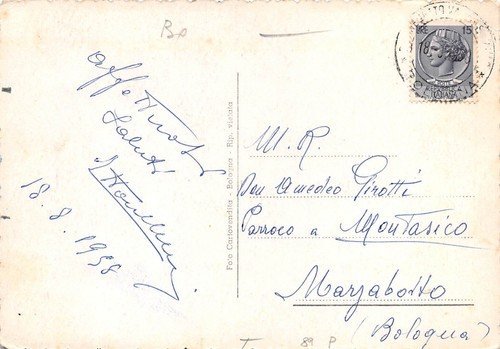 Bo
Affettuosi
Saluti
18.8.1958
Foto Cartovendita - Bologna - Rip. vietata
LIRE 15
BOLOGNA
M. R.
Don Amedeo Girotti
Parroco a Montasico
Marzabotto
(Bologna)
89 P